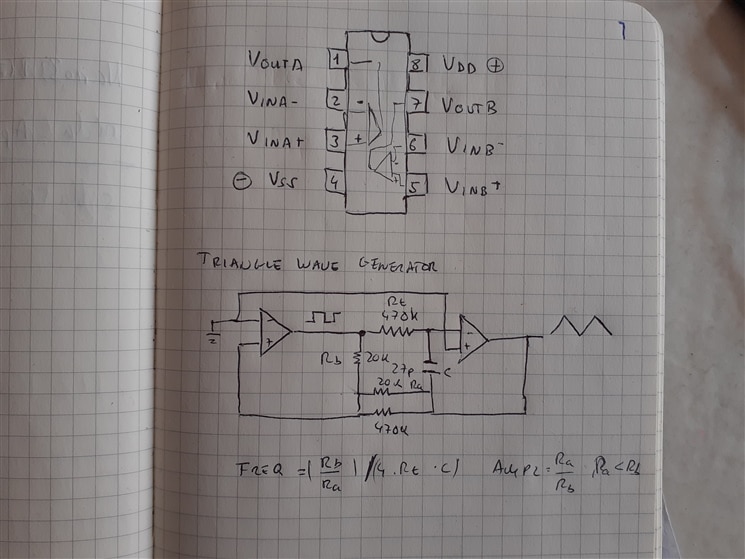 7
VOUTA 1 8 VDD ⊕
VINA- 2 - 7 VOUTB
VINA+ 3 + 6 VINB-
⊖ VSS 4 5 VINB+
TRIANGLE WAVE GENERATOR
Rt
470k
- -
+ +
Rb 20k 27p C
20k Ra
470k
FREQ = (Rb/Ra) / (4 · Rt · C) AMPL = Ra/Rb Ra < Rb